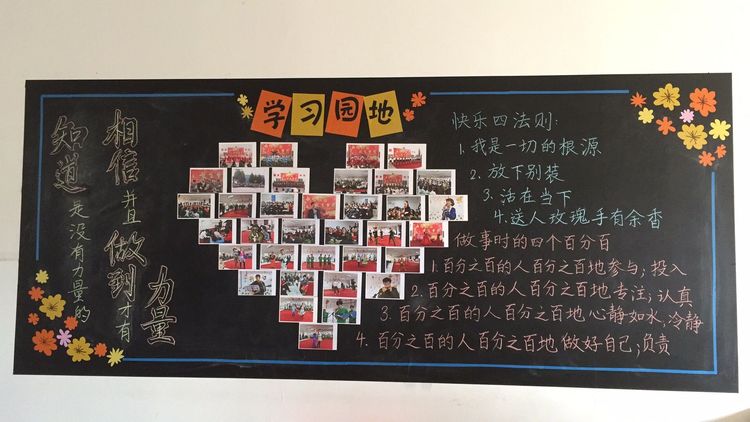 学习园地
知道是没有力量的
相信并且做到才有
力量
快乐四法则:
1. 我是一切的根源
2. 放下别装
3. 活在当下
4. 送人玫瑰手有余香
做事时的四个百分百
1. 百分之百的人百分之百地参与;投入
2. 百分之百的人百分之百地专注;认真
3. 百分之百的人百分之百地心静如水,冷静
4. 百分之百的人百分之百地做好自己;负责